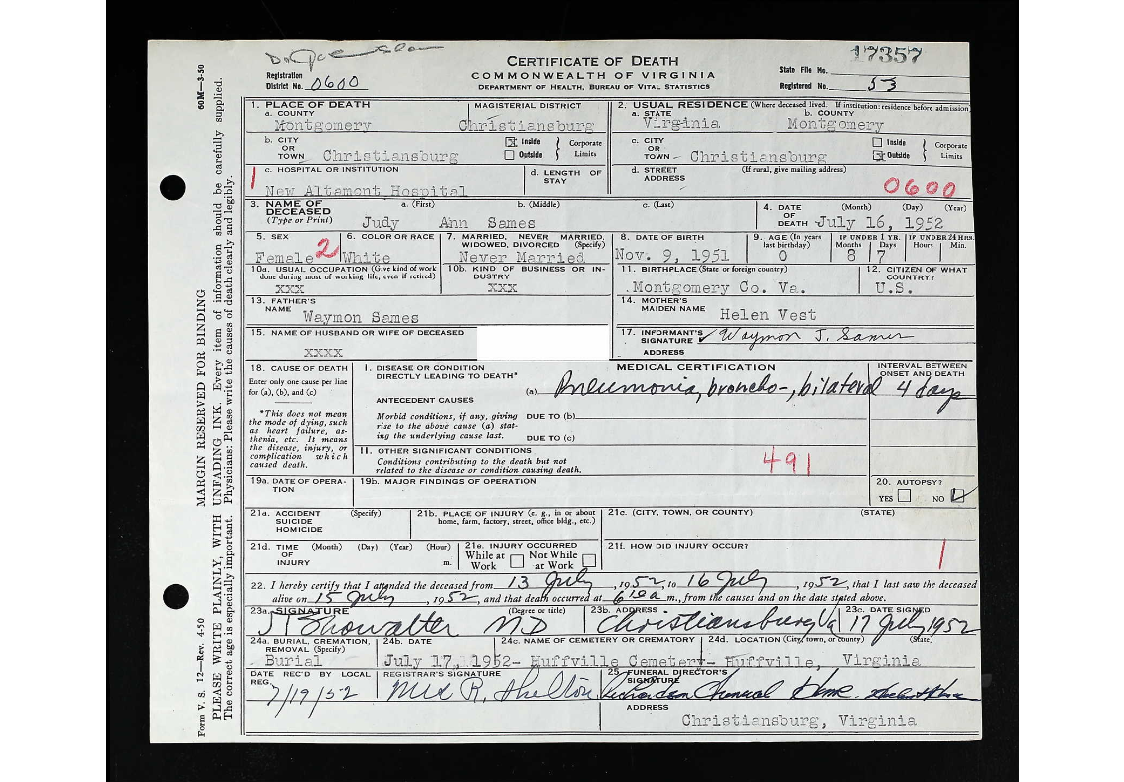 CERTIFICATE OF DEATH
COMMONWEALTH OF VIRGINIA
DEPARTMENT OF HEALTH, BUREAU OF VITAL STATISTICS
17357
State File No.
Registration District No. 0600
Registered No. 53
1. PLACE OF DEATH
a. COUNTY
Montgomery
MAGISTERIAL DISTRICT
Christiansburg
2. USUAL RESIDENCE (Where deceased lived. If institution: residence before admission)
a. STATE
Virginia
b. COUNTY
Montgomery
b. CITY OR TOWN Christiansburg
Inside
Outside
Corporate Limits
c. CITY OR TOWN Christiansburg
Inside
Outside
Corporate Limits
c. HOSPITAL OR INSTITUTION
New Altamont Hospital
d. LENGTH OF STAY
d. STREET ADDRESS
(If rural, give mailing address)
0600
3. NAME OF DECEASED
(Type or Print)
a. (First)
b. (Middle)
c. (Last)
Judy Ann Sames
4. DATE OF DEATH
(Month) (Day) (Year)
July 16, 1952
5. SEX
Female
2
6. COLOR OR RACE
White
7. MARRIED, NEVER MARRIED, WIDOWED, DIVORCED (Specify)
Never Married
8. DATE OF BIRTH
Nov. 9, 1951
9. AGE (In years last birthday)
0
IF UNDER 1 YR.
Months Days
8 7
IF UNDER 24 HRS.
Hour: Min.
10a. USUAL OCCUPATION (Give kind of work done during most of working life, even if retired)
xxx
10b. KIND OF BUSINESS OR INDUSTRY
xxx
11. BIRTHPLACE (State or foreign country)
Montgomery Co. Va.
12. CITIZEN OF WHAT COUNTRY?
U.S.
13. FATHER'S NAME
Waymon Sames
14. MOTHER'S MAIDEN NAME
Helen Vest
15. NAME OF HUSBAND OR WIFE OF DECEASED
xxxx
17. INFORMANT'S SIGNATURE Waymon J. Sames
ADDRESS
18. CAUSE OF DEATH
Enter only one cause per line for (a), (b), and (c)
*This does not mean the mode of dying, such as heart failure, asthenia, etc. It means the disease, injury, or complication which caused death.
MEDICAL CERTIFICATION
I. DISEASE OR CONDITION DIRECTLY LEADING TO DEATH*
(a) Pneumonia, broncho-, bilateral
INTERVAL BETWEEN ONSET AND DEATH
4 days
ANTECEDENT CAUSES
Morbid conditions, if any, giving rise to the above cause (a) stating the underlying cause last.
DUE TO (b)
DUE TO (c)
II. OTHER SIGNIFICANT CONDITIONS
Conditions contributing to the death but not related to the disease or condition causing death.
491
19a. DATE OF OPERATION
19b. MAJOR FINDINGS OF OPERATION
20. AUTOPSY?
YES NO
21a. ACCIDENT SUICIDE HOMICIDE
(Specify)
21b. PLACE OF INJURY (e. g., in or about home, farm, factory, street, office bldg., etc.)
21c. (CITY, TOWN, OR COUNTY) (STATE)
21d. TIME OF INJURY
(Month) (Day) (Year) (Hour)
m.
21e. INJURY OCCURRED
While at Work
Not While at Work
21f. HOW DID INJURY OCCUR?
22. I hereby certify that I attended the deceased from 13 July, 1952, to 16 July, 1952, that I last saw the deceased
alive on 15 July, 1952, and that death occurred at 610a m., from the causes and on the date stated above.
23a. SIGNATURE
(Degree or title)
Showalter M.D
23b. ADDRESS
Christiansburg Va
23c. DATE SIGNED
17 July 1952
24a. BURIAL, CREMATION, REMOVAL (Specify)
Burial
24b. DATE
July 17, 1952-
24c. NAME OF CEMETERY OR CREMATORY
Huffville Cemetery-
24d. LOCATION (City, town, or county) (State)
Huffville, Virginia
DATE REC'D BY LOCAL REG.
7/19/52
REGISTRAR'S SIGNATURE
R. Shelton
25. FUNERAL DIRECTOR'S SIGNATURE
Richardson Funeral Home
ADDRESS
Christiansburg, Virginia
60M—3-50
MARGIN RESERVED FOR BINDING
Form V. S. 12—Rev. 4-50
PLEASE WRITE PLAINLY, WITH UNFADING INK. Every item of information should be carefully supplied.
The correct age is especially important. Physicians: Please write the causes of death clearly and legibly.